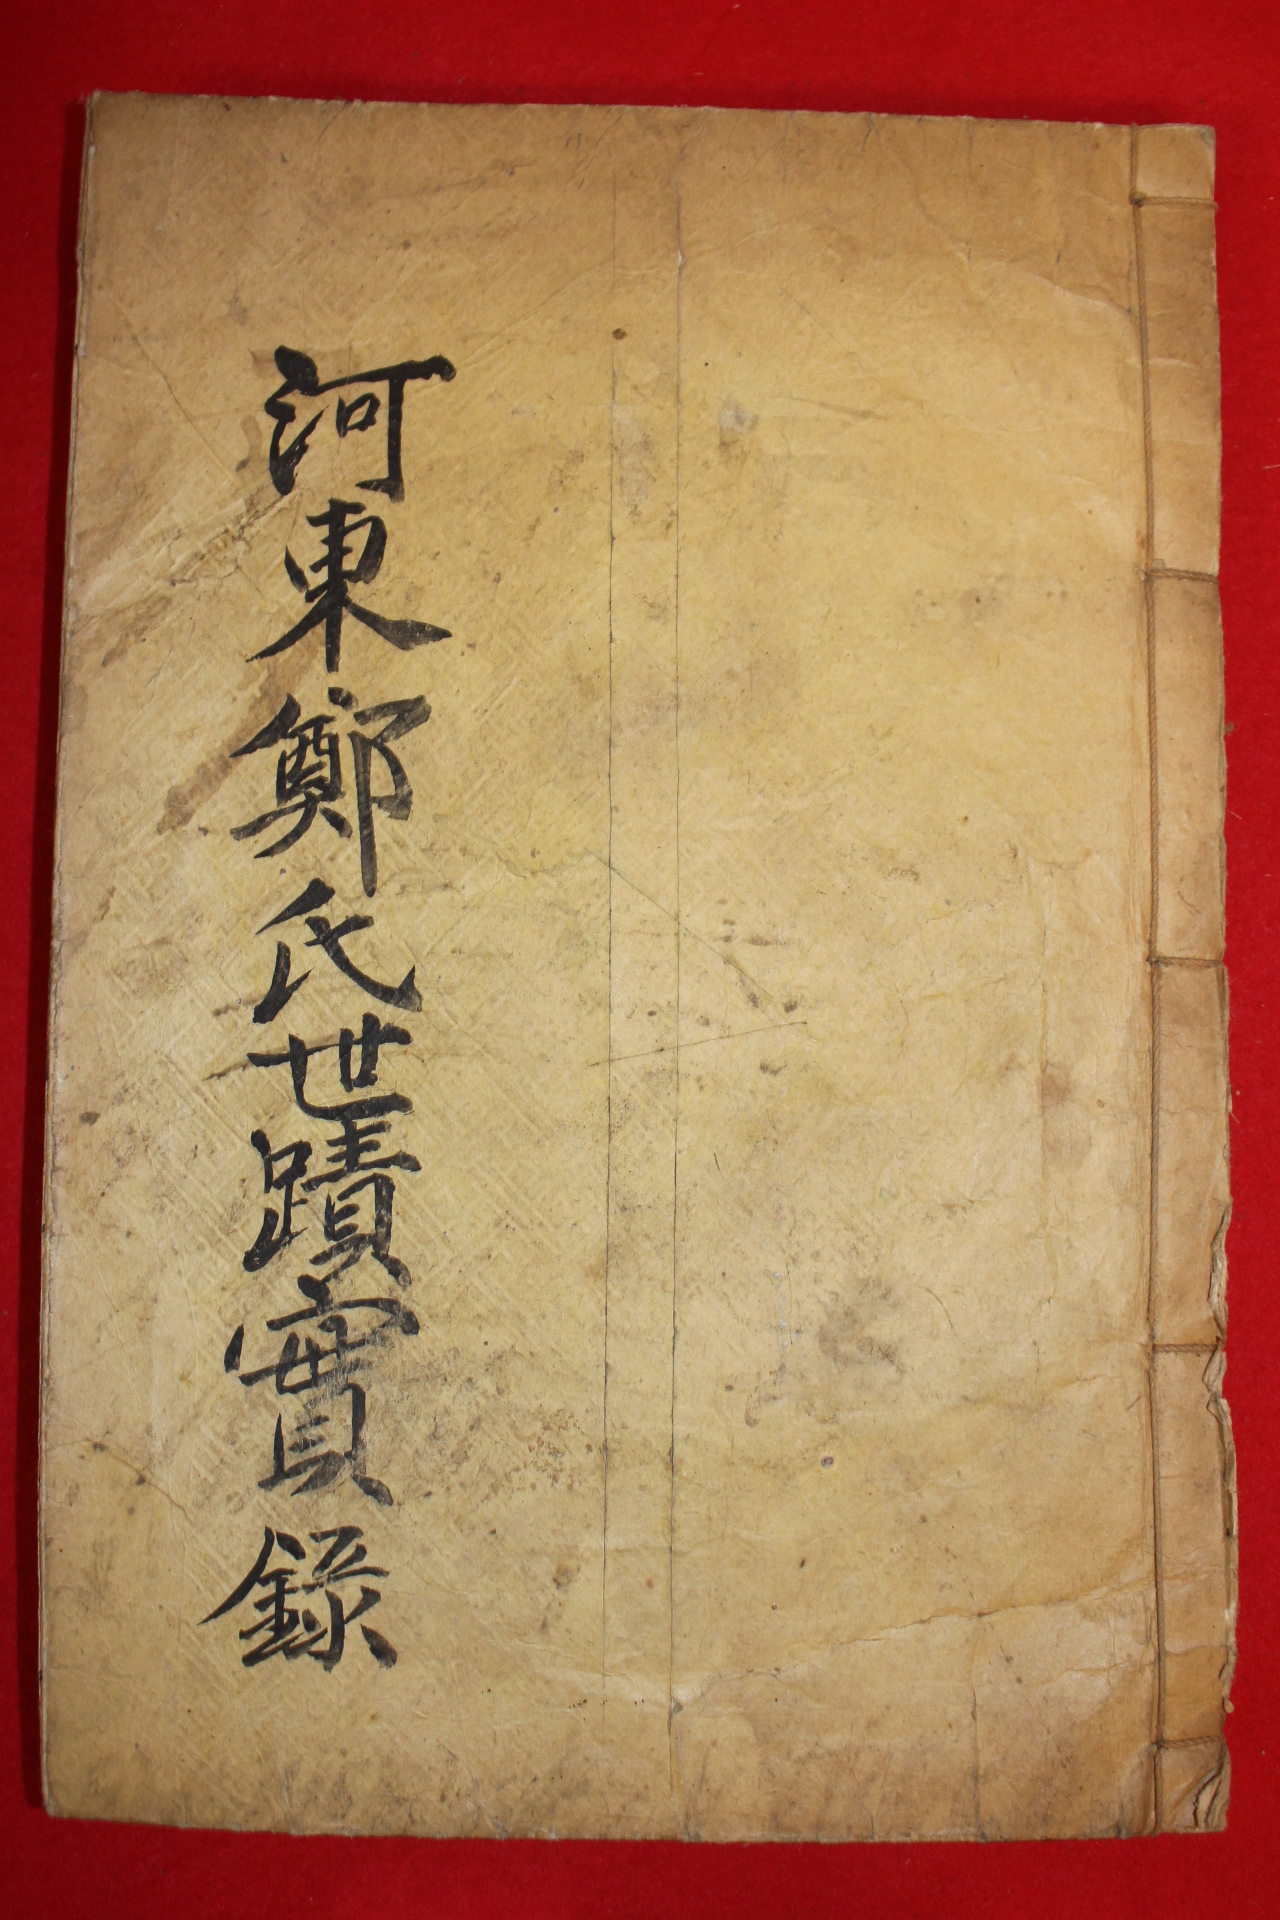 河東鄭氏世蹟實錄